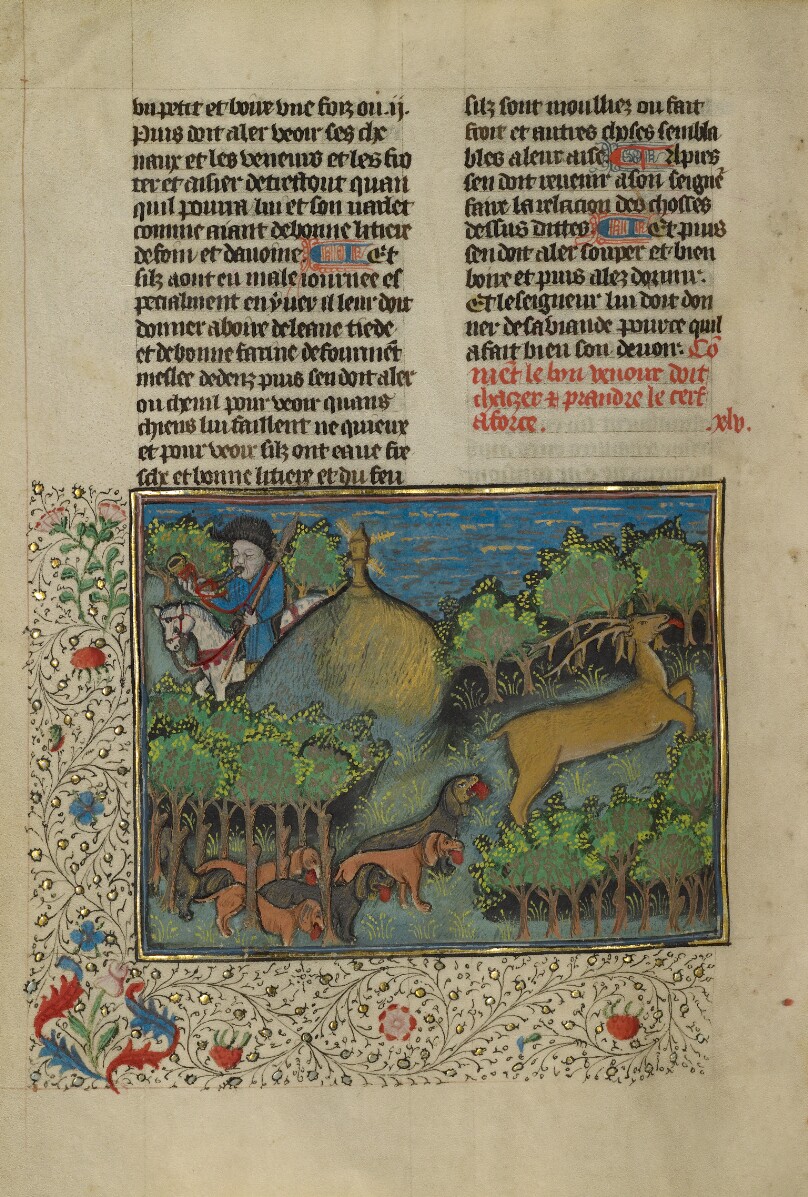 vn petit et boire vne foiz ou .ij.
Puis doit aler veoir ses che
uaux et les veneurs et les fro
ter et aisier detrestout quan
quil pourra lui et son uarlet
comme aiant debonne litiere
defoin et dauoine. Et
silz aont eu male iournee es
pecialment en yuer il leur doit
donner aboire deleaue tiede
et debonne farine defourmet
meslee dedenz puis sen doit aler
ou chenil pour veoir quans
chiens lui faillent ne quieux
et pour veoir silz ont eaue fre
sche et bonne litiere et du feu
silz sont moulliez ou fait
froit et autres choses sembla
bles a leur aise Apres
sen doit reuenir a son seigne
faire la relacion des chosses
dessus dittes Et puis
sen doit aler souper et bien
boire et puis alez dormir.
Et le seigneur lui doit don
ner de sa uiande pource quil
a fait bien son deuoir. Cō
mēt le bon venour doit
chacer & prandre le cerf
a force. .xlv.